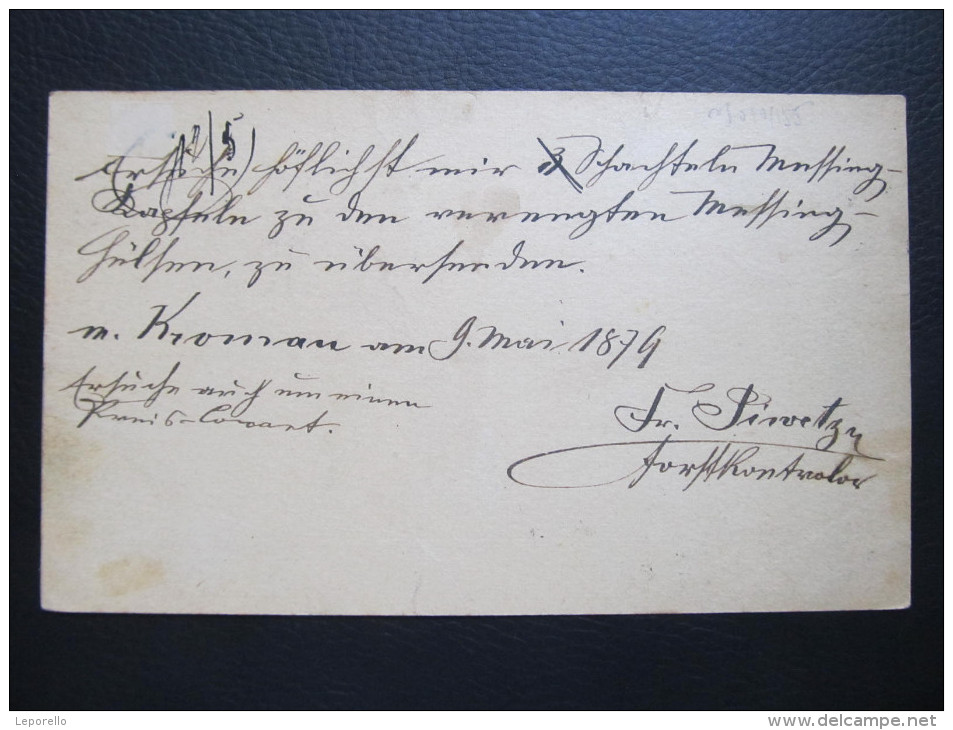 12/5
Ersuche höflichst mir 3 Schachteln Messing-
Kapseln zu den verengten Messing-
hülsen, zu übersenden.
m. Kroman am 9. Mai 1879
Ersuche auch um einen
Preis-Courant.
Fr. Siwetzy
Forstkontrolor
Leporello
www.delcampe.net